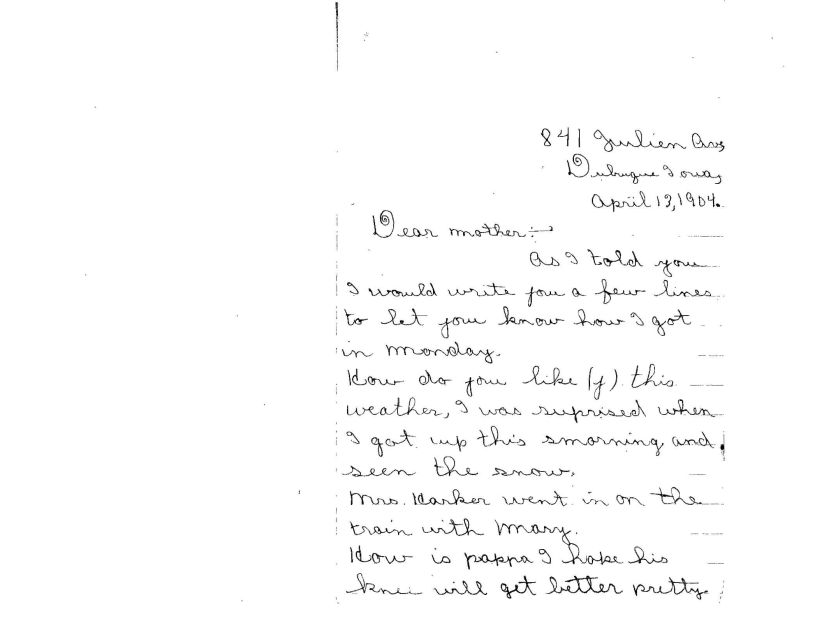 841 Julien Ave,
Dubuque Iowa,
April 13, 1904.
Dear mother:—
As I told you
I would write you a few lines
to let you know how I got
in monday.
How do you like (y) this
weather, I was suprised when
I got up this smorning and
seen the snow.
Mrs. Harker went in on the
train with Mary.
How is pappa I hope his
knee will get better pretty